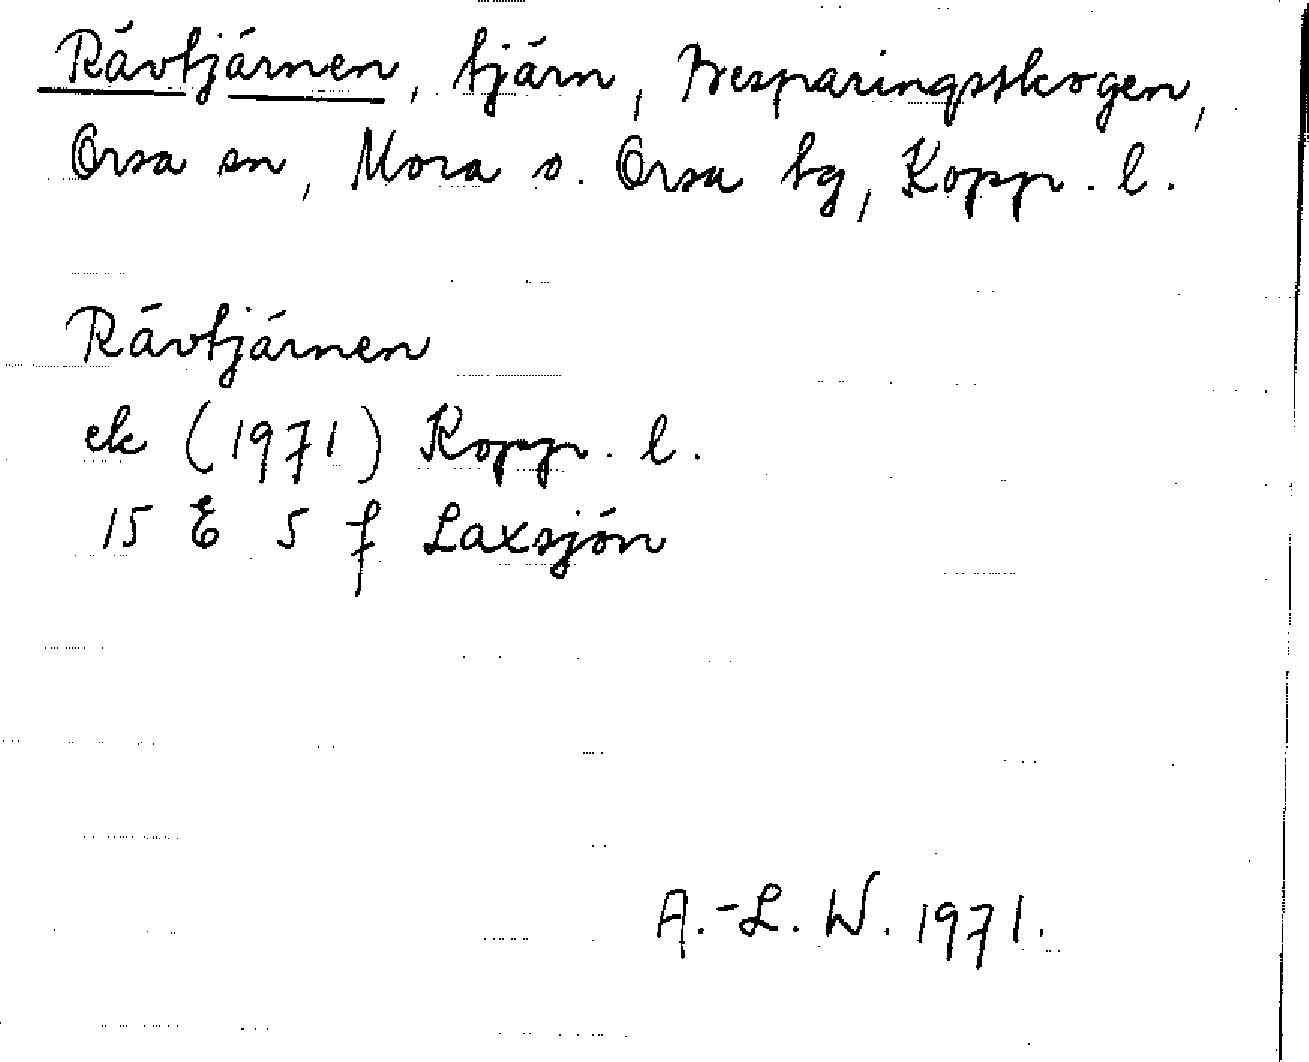 Rävtjärnen, tjärn, Besparingsskogen,
Orsa sn, Mora o. Orsa tg, Kopp. l.
Rävtjärnen
ek (1971) Kopp. l.
15 E 5 f Laxsjön
A.-L. W. 1971.